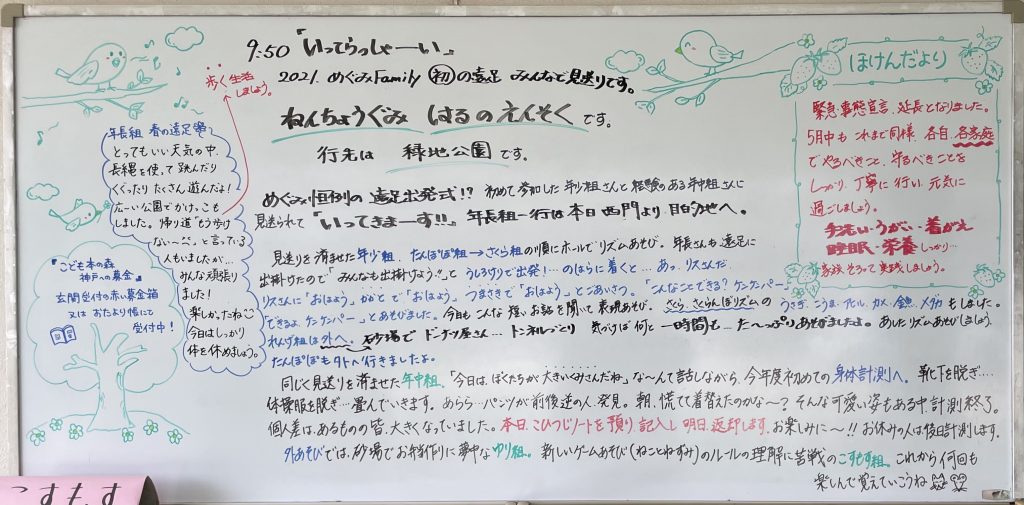 9:50 『いってらっしゃーい』
2021. めぐみFamily 初の遠足 みんなで見送りです。
ねんちょうぐみ はるのえんそく です。
行先は 緑地公園 です。
めぐみ恒例の 遠足出発式!? 初めて参加した年少組さんと経験のある年中組さんに
見送られて 『いってきまーす!!』 年長組一行は本日西門より目的地へ。
見送りを済ませた年少組、たんぽぽ組→さくら組の順にホールでリズムあそび。年長さんも遠足に
出掛けたので「みんなも出掛けよう♡」と うしろけりで出発!…のはらに着くと…あっ、リスさんだ
リスさんに「おはよう」かかとで「おはよう」つまさきで「おはよう」とごあいさつ。「こんなことできる?ケンケンパー」
「できるよ、ケンケンパー」とあそびました。今日もこんな短いお話を聞いて表現あそび。さくら、さくらんぼリズムの うさぎ、こうま、アヒル、カメ、金魚、メダカもしました。
れんげ組は外へ。砂場でドーナツ屋さん…トンネルっこり 気づけば何と 一時間も…た〜っぷりあそびましたよ。あしたリズムあそびしましょう。
たんぽぽも外へ行きましたよ。
同じく見送りを済ませた年中組、「今日は、ぼくたちが大きいくみさんだね」な〜んて話しながら、今年度初めての身体計測へ。靴下を脱ぎ…
体操服を脱ぎ…畳んでいきます。あらら…パンツが前後逆の人、発見。朝、慌てて着替えたのかな〜?そんな可愛い姿もある中、計測終了。
個人差は、あるものの皆、大きくなっていました。本日、こひつじノートを預り、記入し明日、返却します。お楽しみに〜!!お休みの人は後日計測します。
外あそびでは、砂場でお弁当作りに夢中なゆり組。新しいゲームあそび(ねことねずみ)のルールの理解に苦戦のこすもす組。これから何回も
楽しんで覚えていこうね
歩く生活
しましょう。
年長組 春の遠足
とってもいい天気の中、
長縄を使って跳んだり
くぐったりたくさん遊んだよ!
広〜い公園でかけっこも
しました。帰り道“もう歩け
ない〜”と言っている
人もいましたが…
みんな頑張り
ました!
楽しかったね
今日はしっかり
体を休めましょう。
『こども本の森
神戸への募金』
玄関受付の赤い募金箱
又はおたより帳にて
受付中!
ほけんだより
緊急事態宣言、延長となりました。
5月中も これまで同様、各自、各家庭
でやるべきこと、守るべきことを
しっかり、丁寧に行い、元気に
過ごしましょう。
手洗い・うがい・着がえ
睡眠・栄養 しっかり…
ご家族そろって実践しましょう。
こすもす